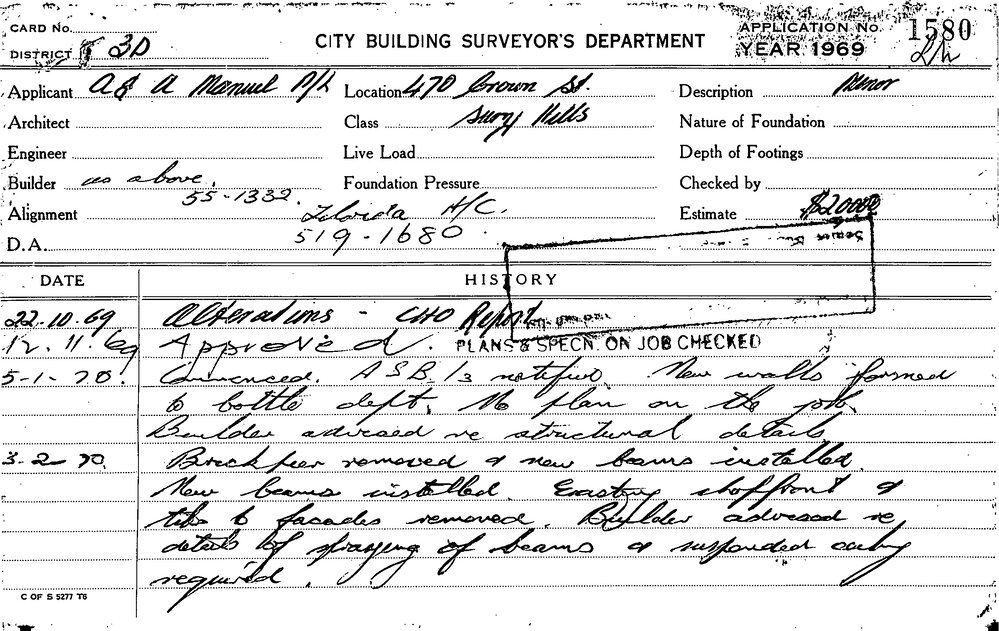 CARD No.
DISTRICT 3D
CITY BUILDING SURVEYOR'S DEPARTMENT
APPLICATION No. 1580
YEAR 1969
Applicant A & A Manuel P/L
Location 470 Crown St.
Description Minor
Architect
Class Surry Hills
Nature of Foundation
Engineer
Live Load
Depth of Footings
Builder as above.
Foundation Pressure
Checked by
55-1332.
Alignment
Florida H/C.
Estimate $20000
D.A.
519-1680
DATE
HISTORY
22.10.69 Alterations - CHO Report
12.11.69 Approved. PLANS & SPECN. ON JOB CHECKED
5-1-70. Commenced. A S B /3 notified. New walls formed
to bottle dept. No plan on the job.
Builder advised re structural details
3-2-70. Brick pier removed & new beams installed.
New beams installed. Existing shopfront &
tiles to facades removed. Builder advised re
details of spraying of beams & suspended ceiling
required.
C OF S 5277 T6